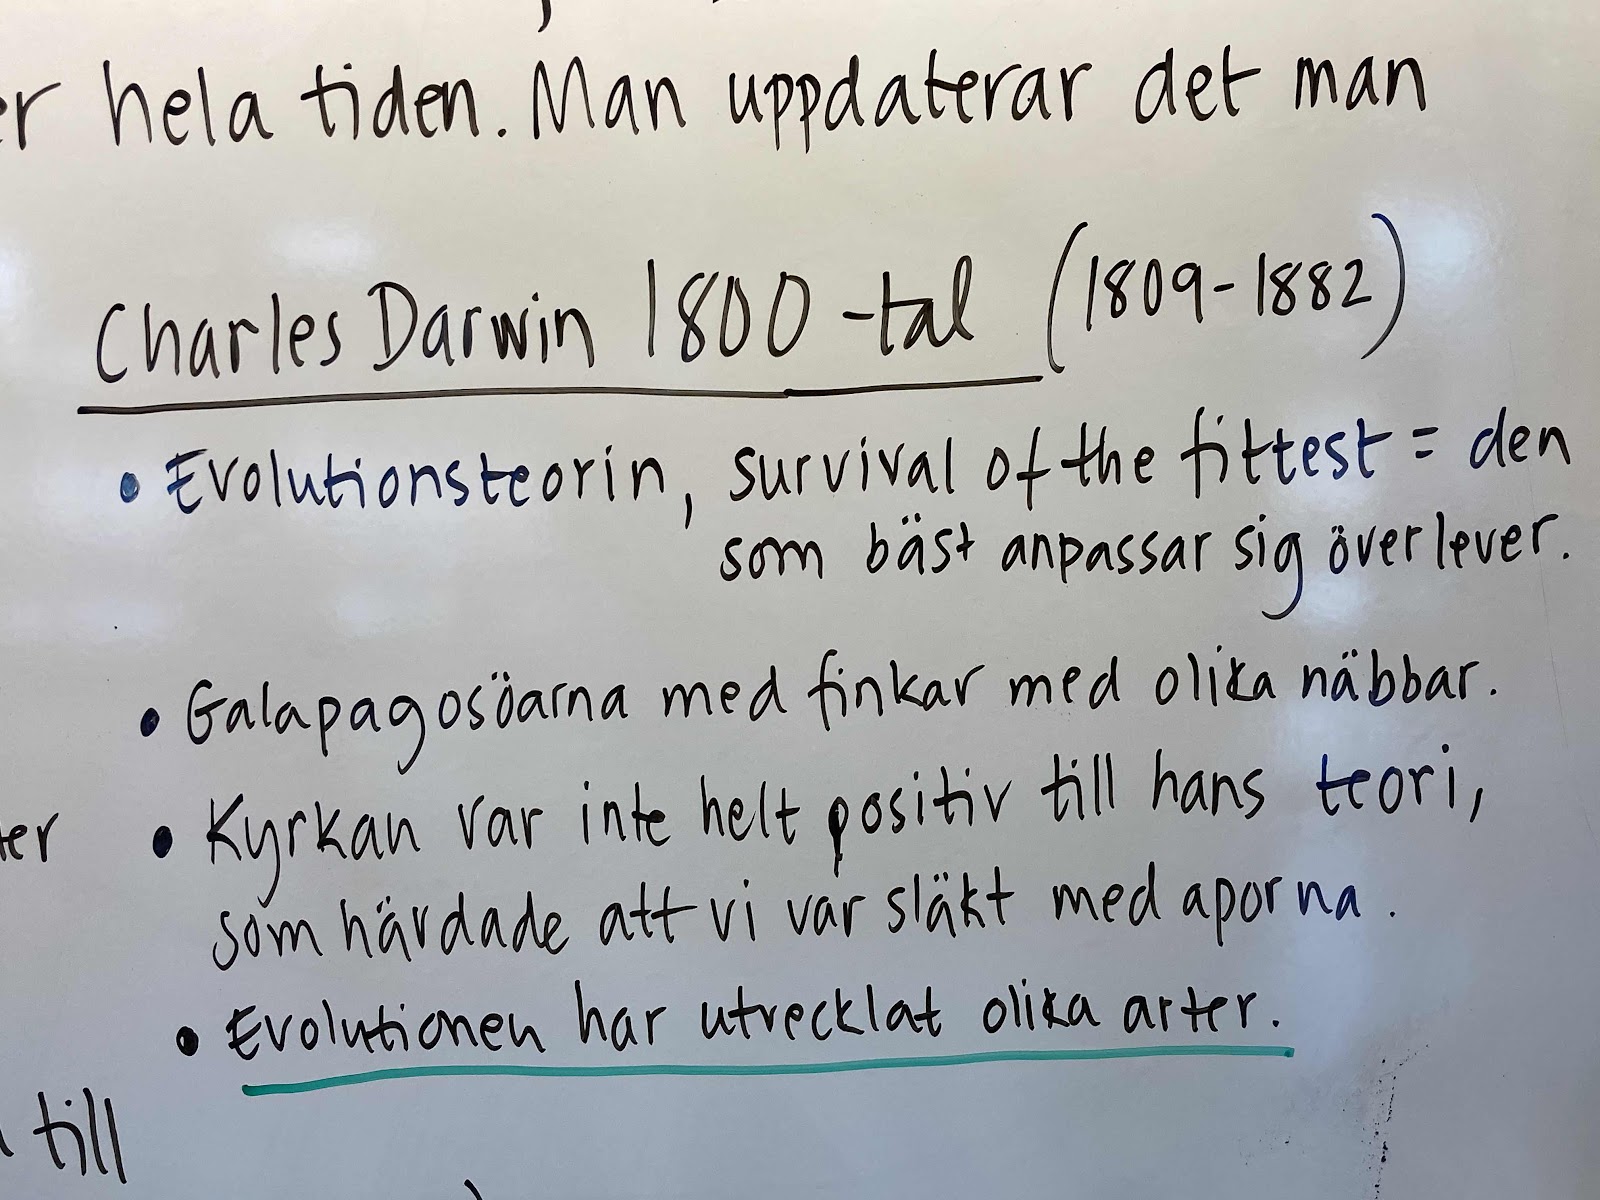 er hela tiden. Man uppdaterar det man
Charles Darwin 1800-tal (1809-1882)
• Evolutionsteorin, survival of the fittest = den
som bäst anpassar sig överlever.
• Galapagosöarna med finkar med olika näbbar.
• Kyrkan var inte helt positiv till hans teori,
som härdade att vi var släkt med aporna.
• Evolutionen har utvecklat olika arter.
till